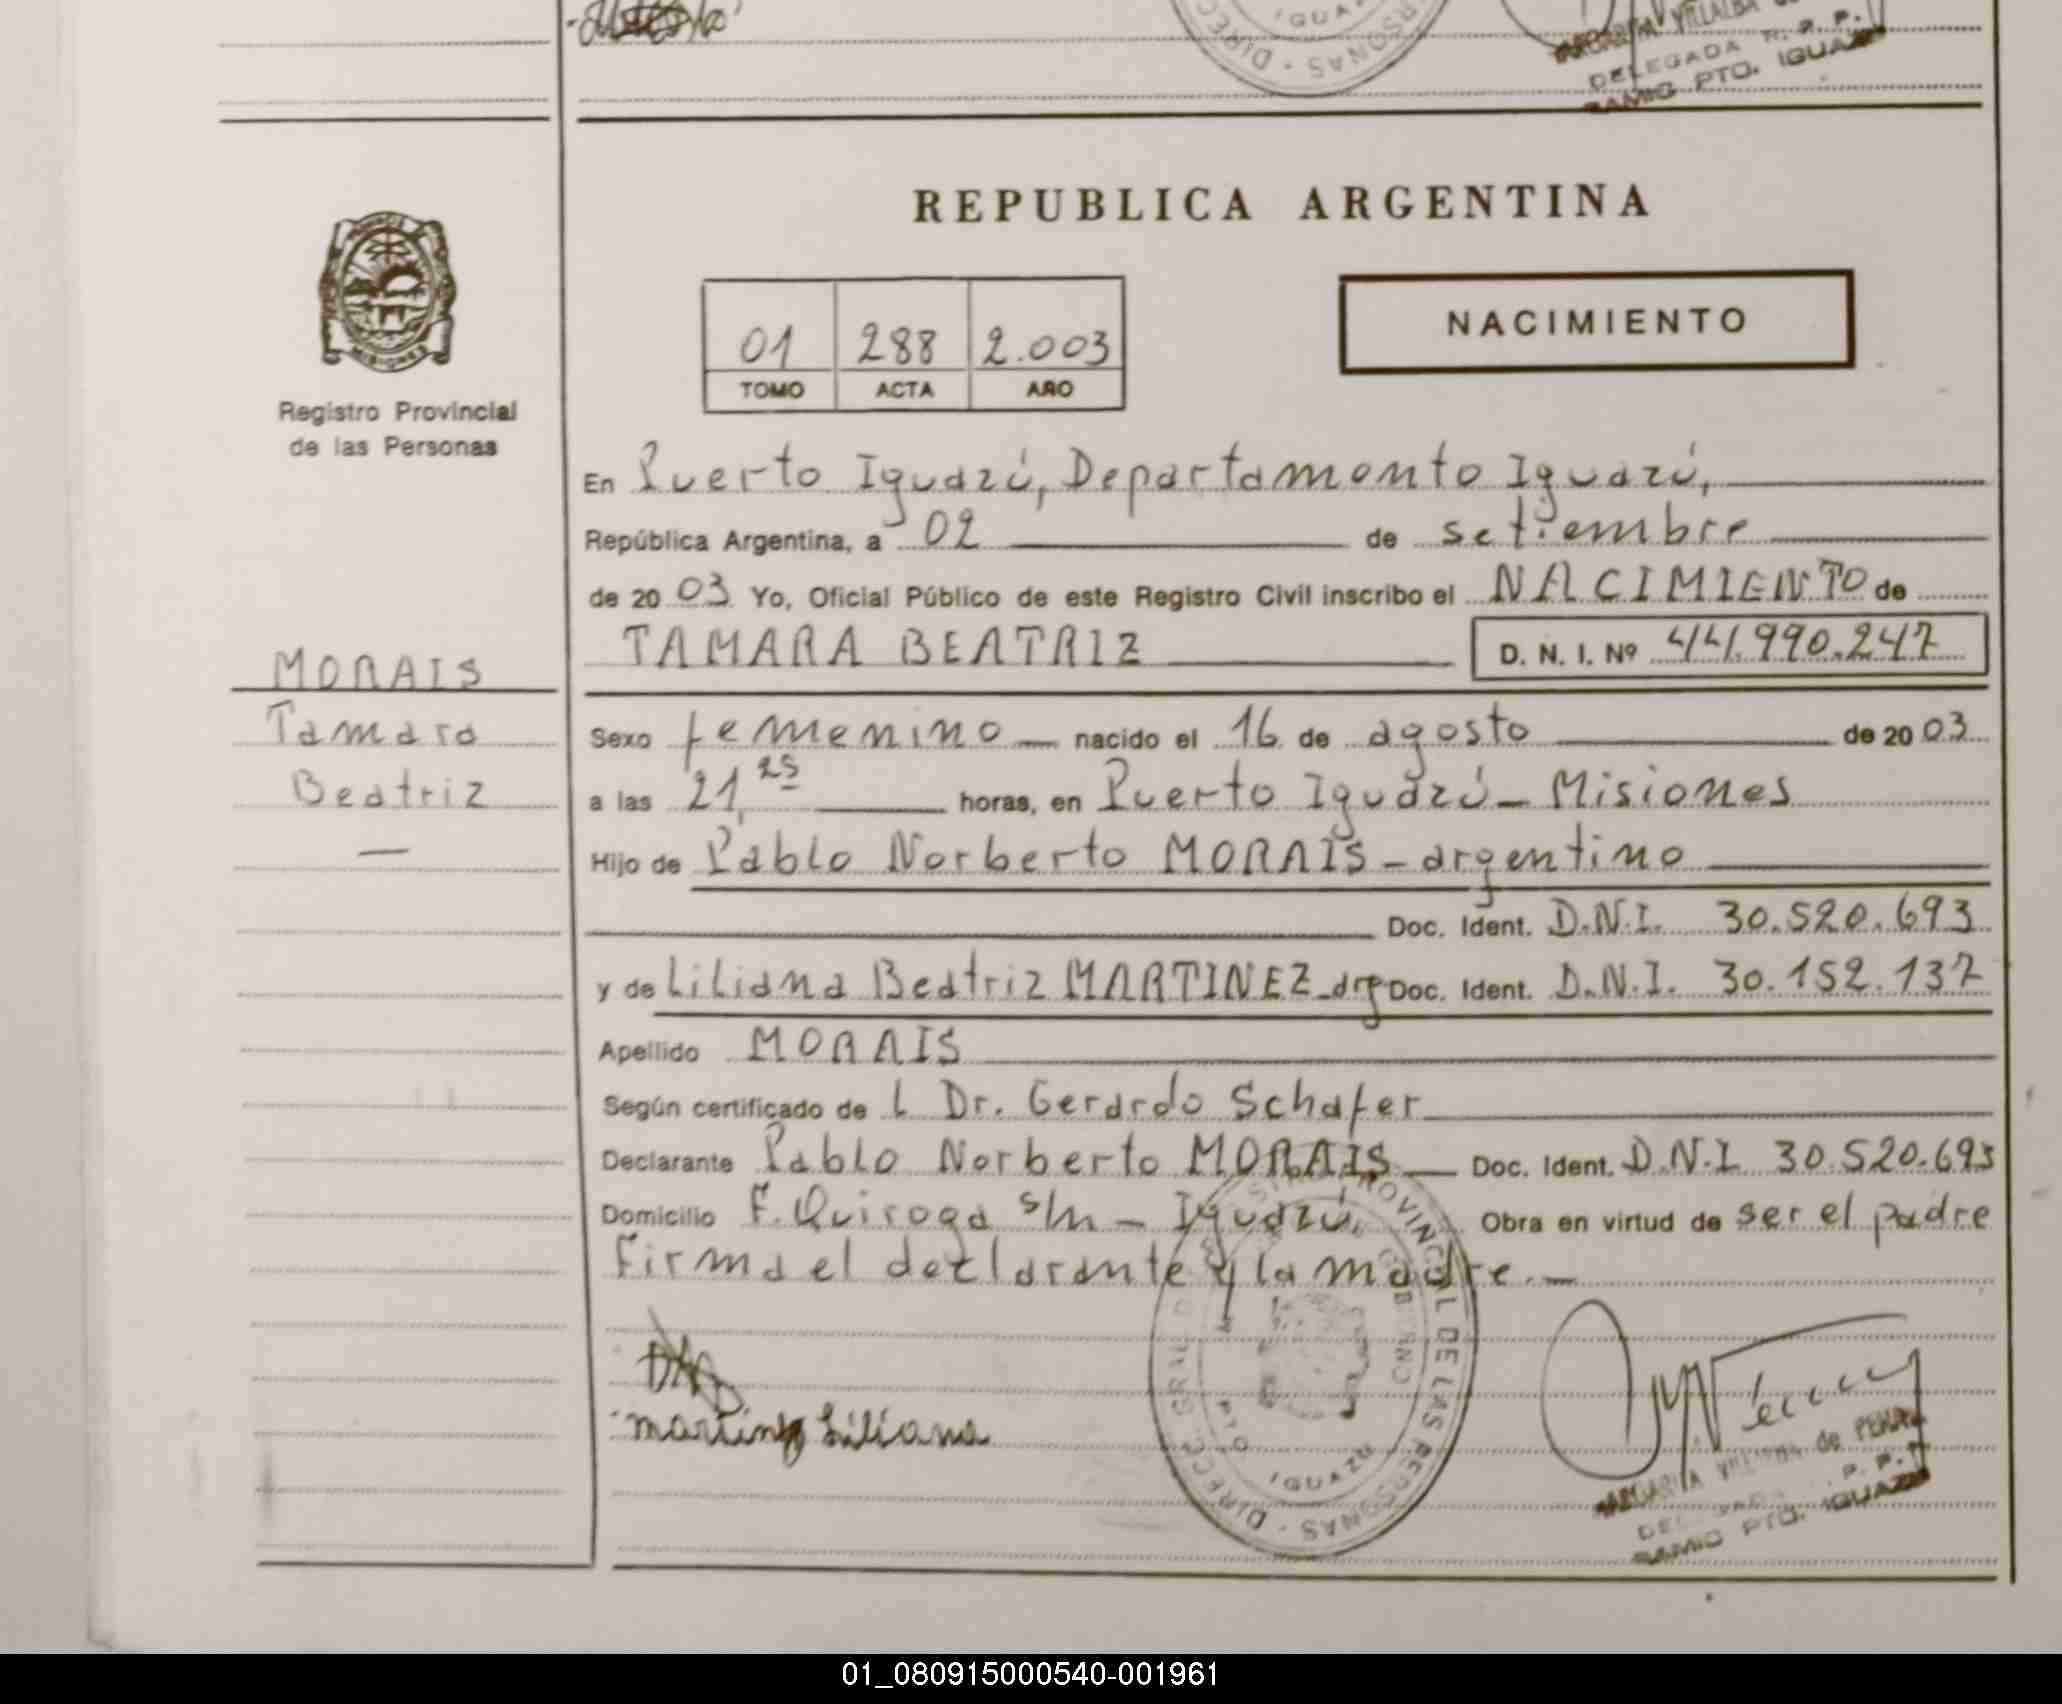 IGUA
DIREC
RSONAS
DELEGADA R. P. P.
RAMIG PTO. IGUAZU
MISIONES
Registro Provincial
de las Personas
REPUBLICA ARGENTINA
01 288 2.003
TOMO ACTA AÑO
NACIMIENTO
En Puerto Iguazú, Departamento Iguazú,
República Argentina, a 02 de setiembre
de 20 03 Yo, Oficial Público de este Registro Civil inscribo el NACIMIENTO de
TAMARA BEATRIZ D. N. I. Nº 44.990.247
MORAIS
Tamara
Beatriz
Sexo femenino nacido el 16 de agosto de 20 03
a las 21,25 horas, en Puerto Iguazú - Misiones
Hijo de Pablo Norberto MORAIS - argentino
Doc. Ident. D.N.I. 30.520.693
y de Liliana Beatriz MARTINEZ - arg Doc. Ident. D.N.I. 30.152.137
Apellido MORAIS
Según certificado de L Dr. Gerardo Schafer
Declarante Pablo Norberto MORAIS Doc. Ident. D.N.I. 30.520.693
Domicilio F. Quiroga s/n - Iguazú, Obra en virtud de ser el padre
Firma el declarante y la madre.-
Martinez Liliana
PROVINCIAL DE LAS PERSONAS
GOBIERNO
PTO IGUAZU
MARGARITA VILLALBA de PENA
R. P. P.
RAMIG PTO. IGUAZU
01_080915000540-001961